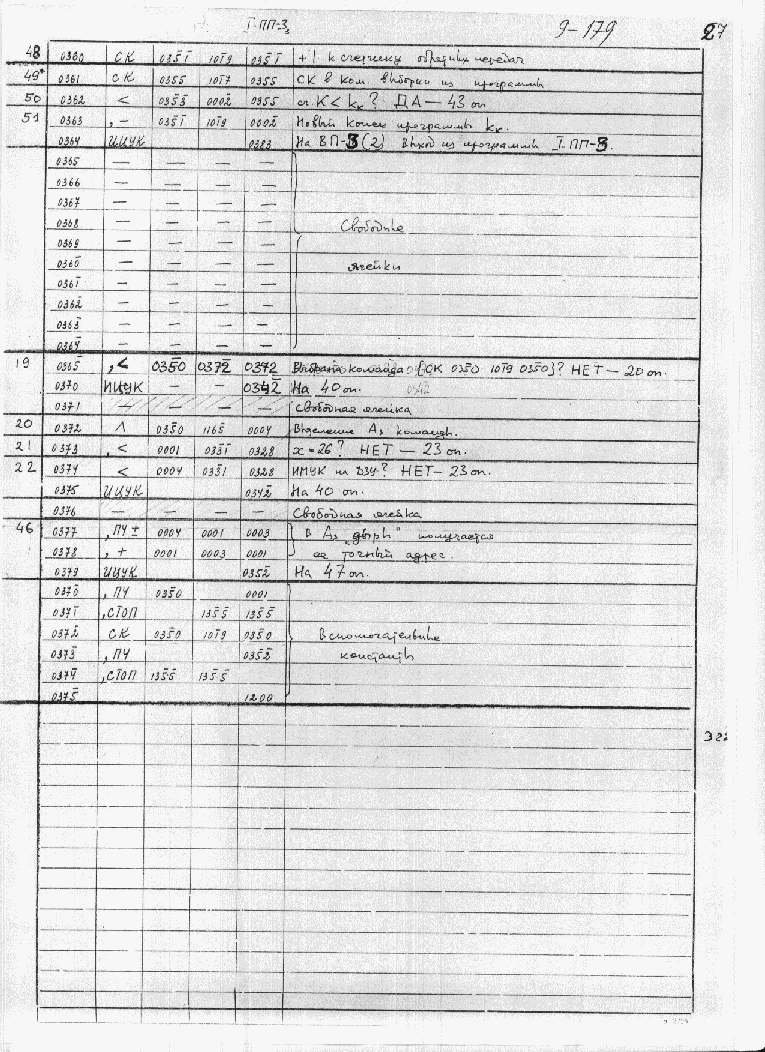 I-ПП-3₃
9-179
27
48 0360 СК 035̄1̄ 101̄9 035̄1̄ +1 к счетчику обратных передач
49* 0361 СК 0355 101̄7 0355 СК в ком. выборки из программы
50 0362 < 035̄3̄ 0002̄ 0355 сч. К < kк? ДА — 43 оп
51 0363 , – 035̄1̄ 101̄9 0002̄ Новый конец программы kк.
0364 ИЦУК 0383 На ВП-3 (2) Выход из программы I-ПП-3.
0365 — — — —
0366 — — — —
0367 — — — —
0368 — — — — Свободные
0369 — — — —
036̄0̄ — — — — ячейки
036̄1̄ — — — —
036̄2̄ — — — —
036̄3̄ — — — —
036̄4̄ — — — —
19 036̄5̄ , < 035̄0̄ 037̄2̄ 0372 команда {СК 035̄0̄ 101̄9 035̄0̄}? НЕТ — 20 оп.
0370 ИЦУК — — 034̄2̄ На 40 оп.
0371 — — — — Свободная ячейка
20 0372 Λ 035̄0̄ 116̄5 0004 Выделение A₃ команды.
21 0373 , < 0001 033̄1̄ 0328 x = 26? НЕТ — 23 оп.
22 0374 < 0004 033̄1 0328 ИМУК на ДЗУ? НЕТ — 23 оп.
0375 ИЦУК 034̄2̄ На 40 оп.
0376 — — — — Свободная ячейка
46 0377 , ПУ ± 0004 0001 0003 В A₃ „дыры“ получается
0378 , + 0001 0003 0001 ее точный адрес.
0379 ИЦУК 035̄2̄ На 47 оп.
037̄0̄ , ПУ 035̄0̄ 0001
037̄1̄ , СТОП 135̄5̄ 135̄5̄
037̄2̄ СК 035̄0̄ 101̄9 035̄0̄ Вспомогательные
037̄3̄ , ПУ 035̄2̄ константы
037̄4̄ , СТОП 135̄5̄ 135̄5̄
037̄5̄ 1200